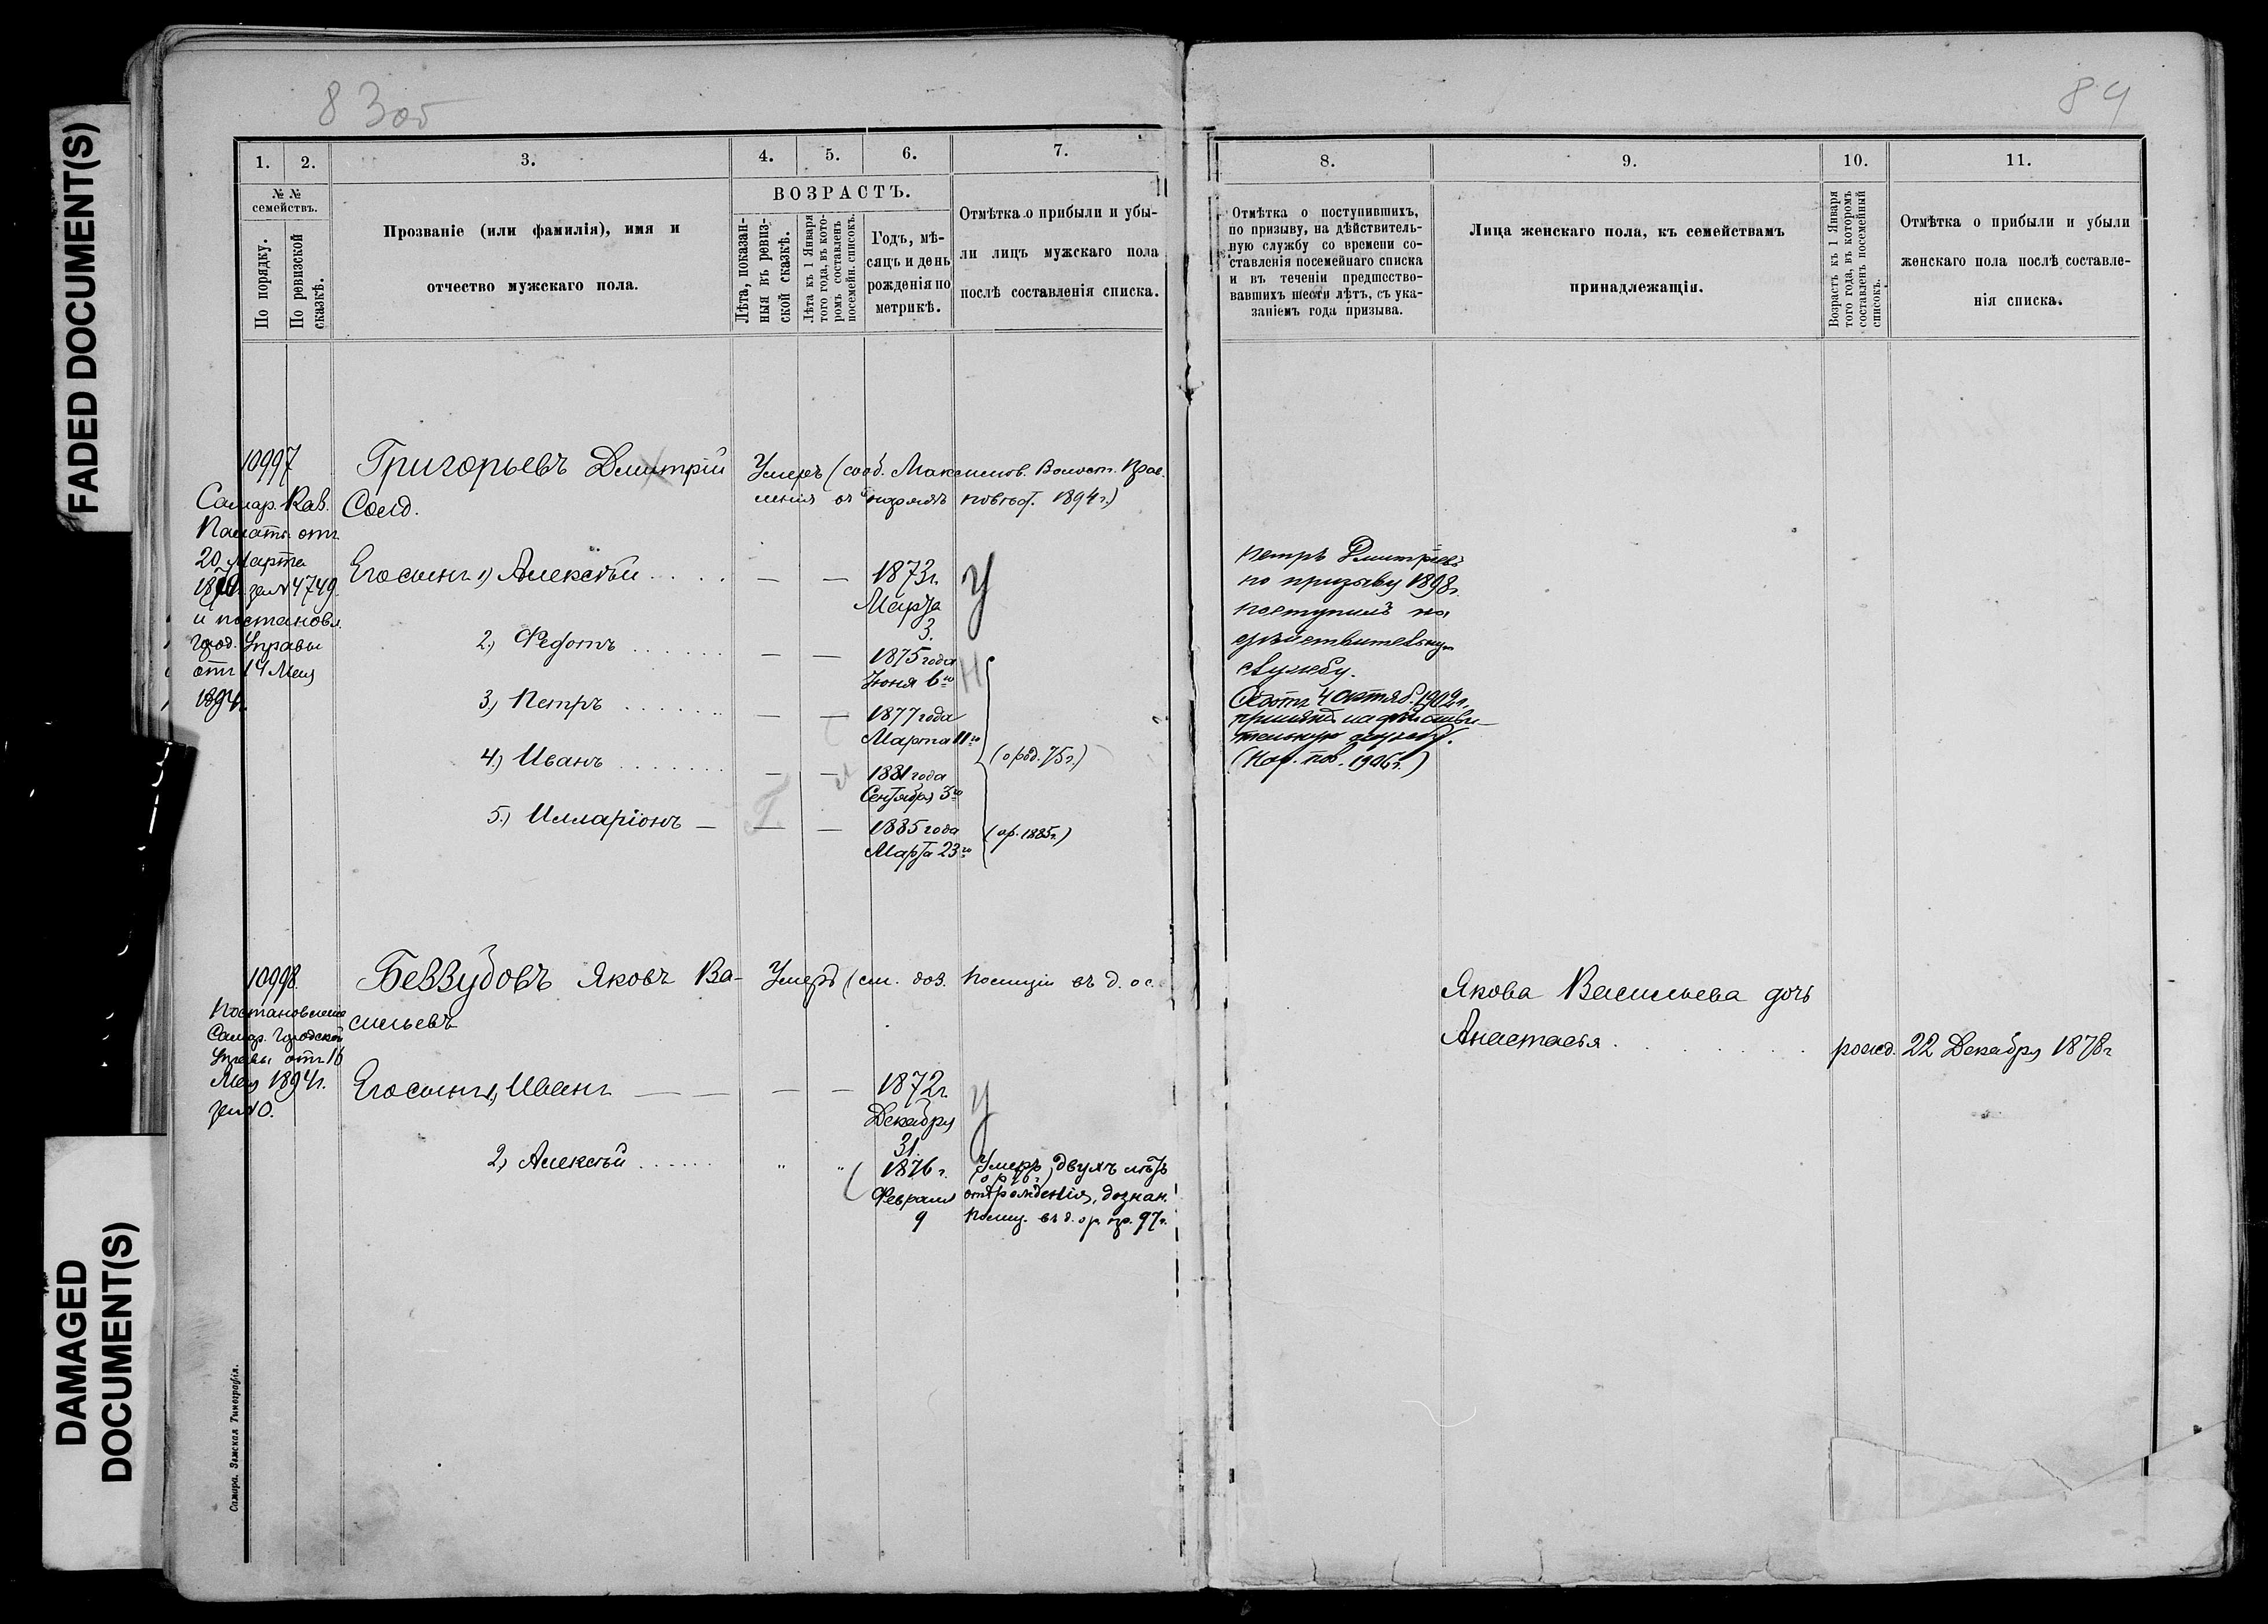 FADED DOCUMENT(S)
DAMAGED
DOCUMENT(S)
83об
84
1.
2.
3.
4.
5.
6.
7.
№ №
семействъ.
По порядку.
По ревизской
сказкѣ.
Прозваніе (или фамилія), имя и
отчество мужскаго пола.
ВОЗРАСТЪ.
Лѣта, показан-
ныя въ ревиз-
ской сказкѣ.
Лѣта къ 1 Января
того года, въ кото-
ромъ составленъ
посемейн. списокъ.
Годъ, мѣ-
сяцъ и день
рожденія по
метрикѣ.
Отмѣтка о прибыли и убы-
ли лицъ мужскаго пола
послѣ составленія списка.
10997
Самар. Каз.
Палаты отъ
20 Марта
за № 4749.
и постановл.
город. Управы
отъ 14 Мая
1894г.
Григорьевъ Дмитрій
Солд.
Умеръ (сооб. Максимов. Волост. Прав-
ленія 1894 г.)
Его сынъ 1) Алексѣй . . . .
— — 1873г.
Марта
3.
У
2.) Федотъ . . . . . .
— — 1875 года
Іюня 6го
Н
3.) Петръ . . . . . . .
— — 1877 года
Марта 11го
4.) Иванъ . . . . . . .
— — 1881 года
Сентября 3го
(о род. 75г.)
5.) Илларіонъ —
Г.
— — 1885 года
Марта 23го
(ор. 1885г.)
10998.
Постановленіе
Самар. Городской
Управы отъ 16
Мая 1894г.
за № 0.
Беззубовъ Яковъ Ва-
сильевъ
Умеръ (см. доз. полиціи въ д.
Его сынъ 1) Иванъ — —
— — 1872г.
Декабря
31.
У
2) Алексѣй . . . . . .
" " 1876 г.
Февраля
9
Умеръ двухъ лѣтъ
отъ рожденія, дознан.
Полиц. въ д. ор. пр. 97г.
Самара. Земская Типографія.
8.
9.
10.
11.
Отмѣтка о поступившихъ,
по призыву, на дѣйствитель-
ную службу со времени со-
ставленія посемейнаго списка
и въ теченіи предшество-
вавшихъ шести лѣтъ, съ ука-
заніемъ года призыва.
Лица женскаго пола, къ семействамъ
принадлежащія.
Возрастъ къ 1 Января
того года, въ которомъ
составленъ посемейный
списокъ.
Отмѣтка о прибыли и убыли
женскаго пола послѣ составле-
нія списка.
Петръ Дмитріевъ
по призыву 1898г.
поступилъ на
дѣйствительную
службу.
Федотъ 4 октяб. 1902г.
принятъ на дѣйстви-
тельную службу.
(Кар. пов. 1906г.)
Якова Васильева дочь
Анастасья . . . . . . .
рожд. 22 Декабря 1878г